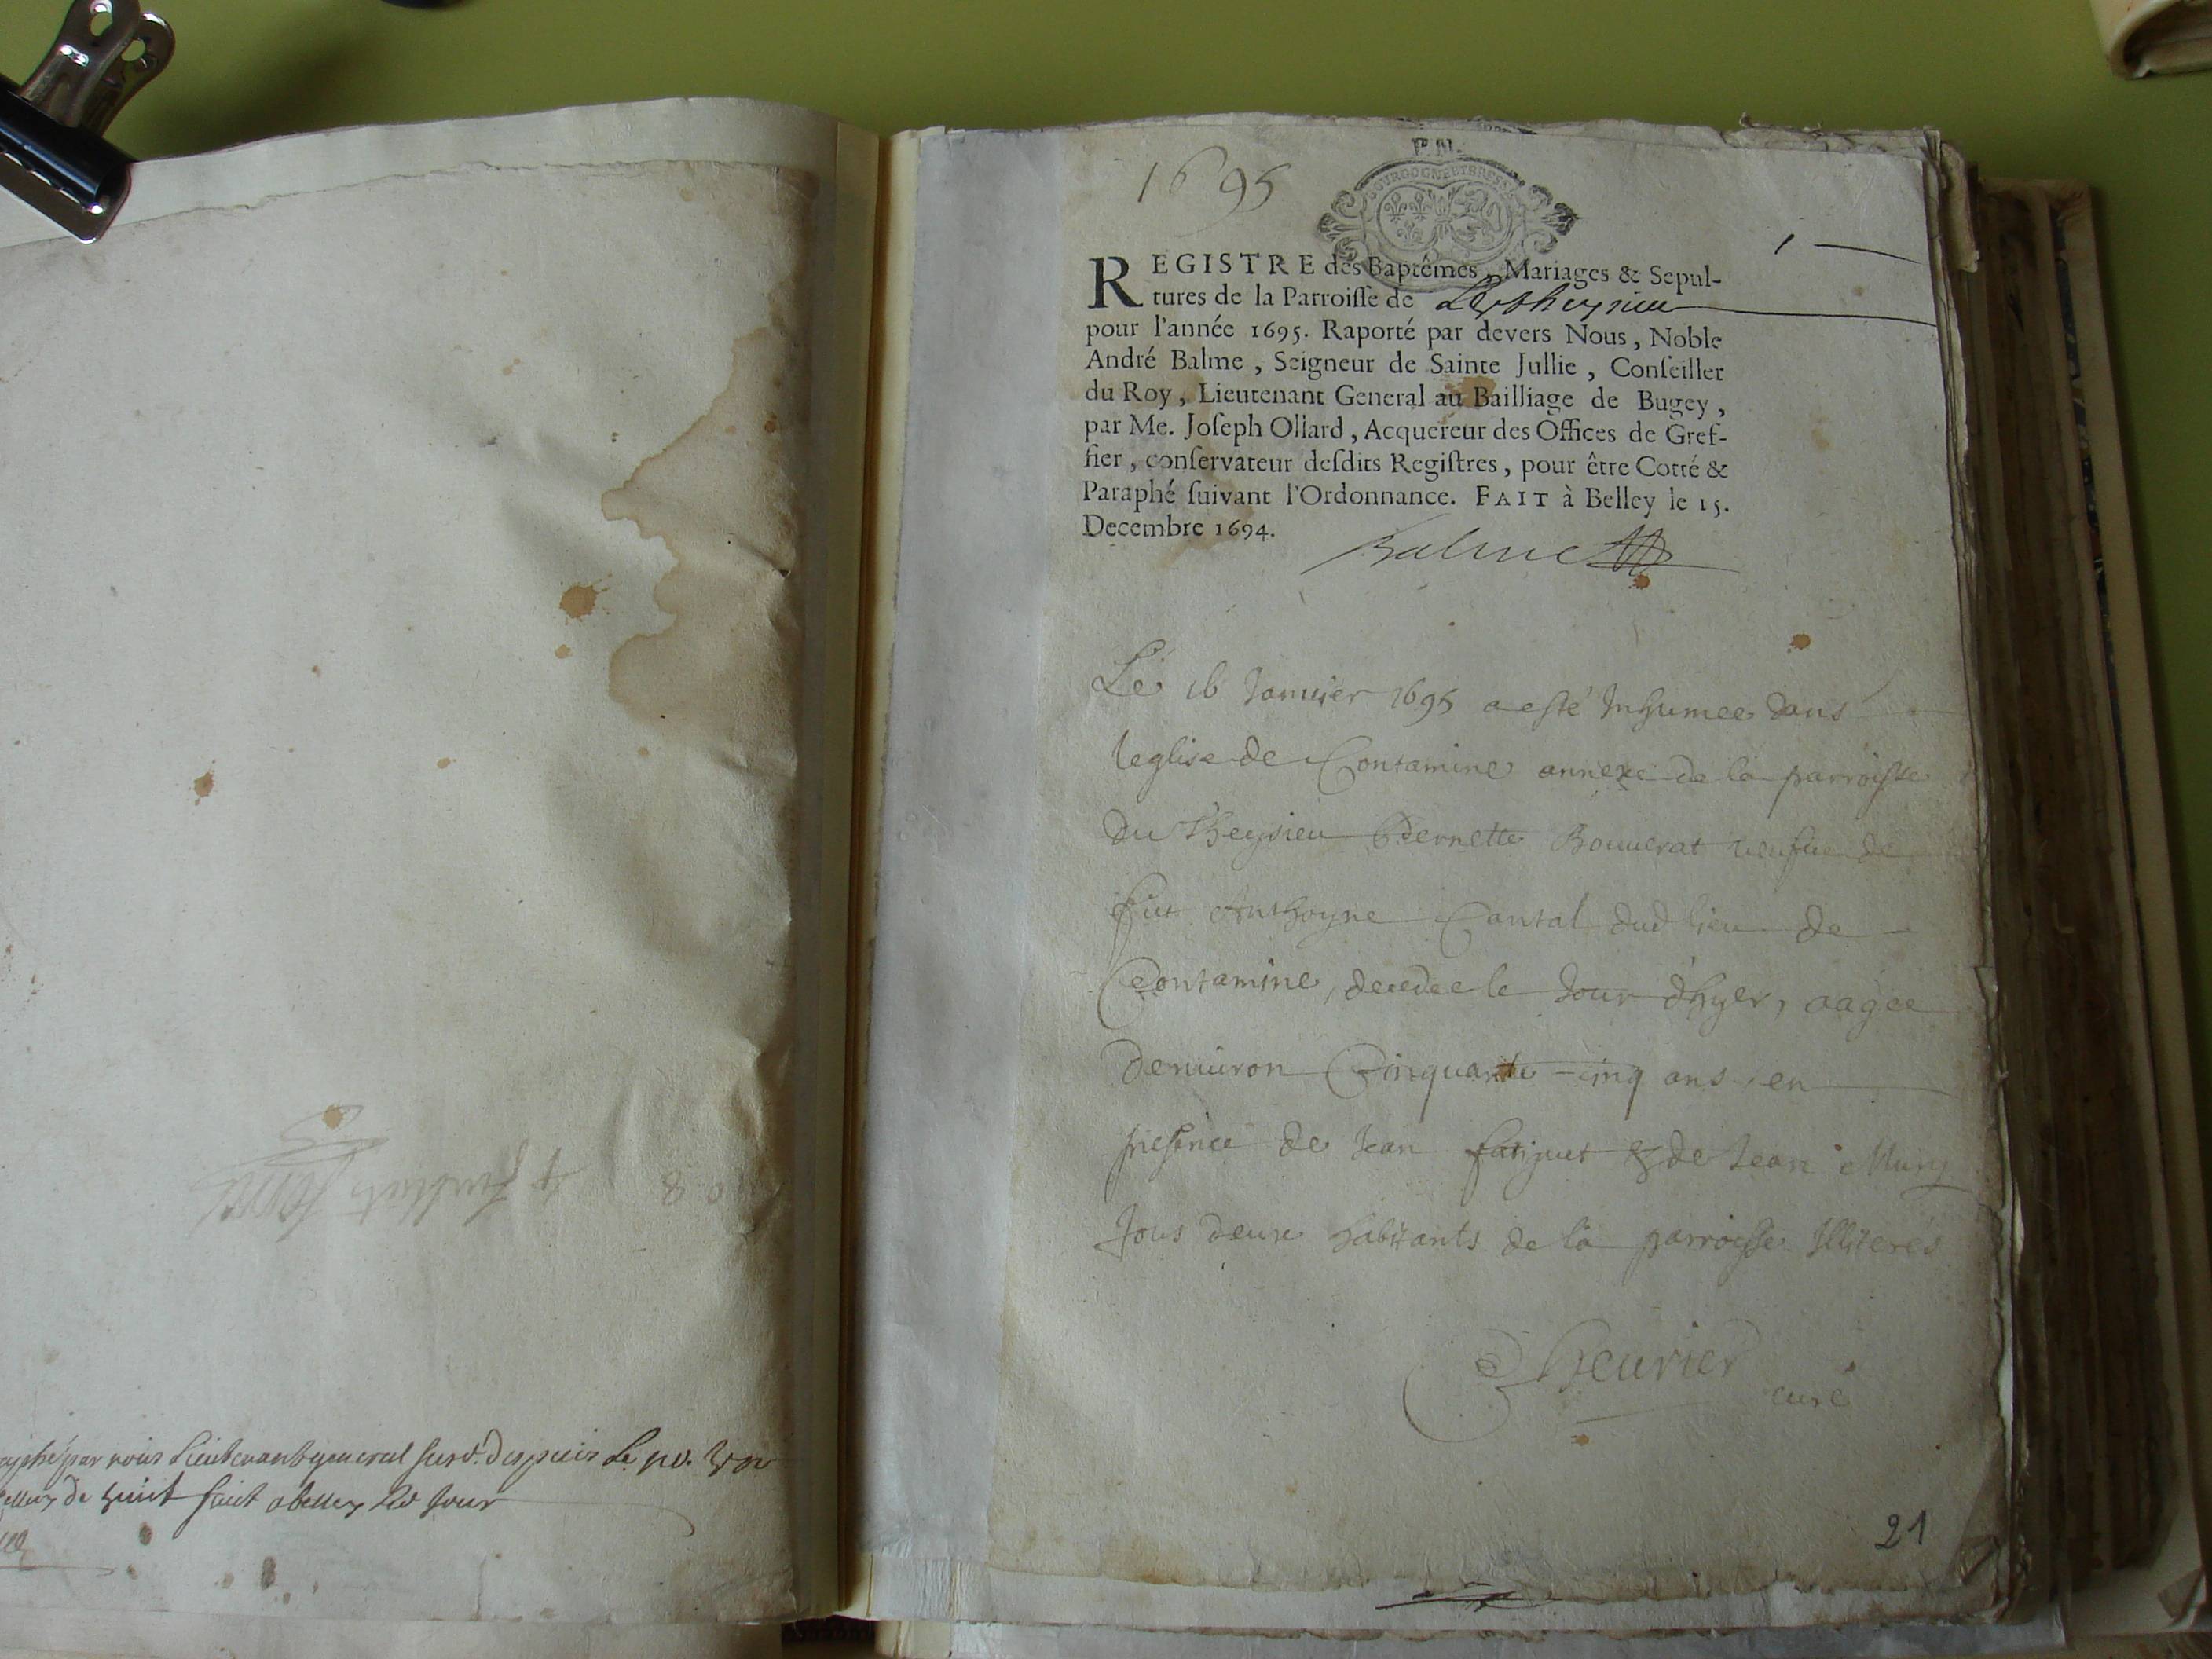 aphé par nous Lieutenant general
de huit fait a belley led jour
8
1695
P. M.
BOURGOGNE ET BRESSE
1
REGISTRE des Baptêmes, Mariages & Sepul-
tures de la Parroisse de
pour l'année 1695. Raporté par devers Nous, Noble
André Balme, Seigneur de Sainte Jullie, Conseiller
du Roy, Lieutenant General au Bailliage de Bugey,
par Me. Joseph Ollard, Acquereur des Offices de Gref-
fier, conservateur desdits Registres, pour être Cotté &
Paraphé suivant l'Ordonnance. FAIT à Belley le 15.
Decembre 1694.
Balme
Le 16 Januier 1695 a esté Inhumee dans
leglise de Contamine annexe de la parroisse
du Theysieu Pernette Bouuerat veufue de
fut Anthoyne Cantal dud lieu de
Contamine, decedee le Jour dhyer, aagee
denuiron Cinquante-cinq ans, en
presence de Jean & de Jean
Tous deux habitants de la parroisse Illiterés
curé
21